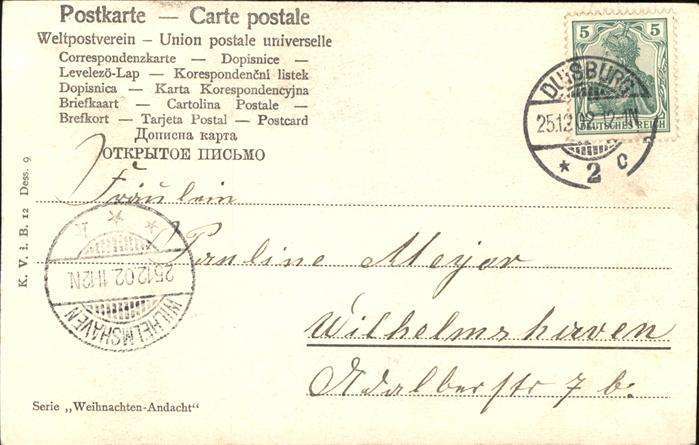 Postkarte — Carte postale
Weltpostverein – Union postale universelle
Correspondenzkarte — Dopisnice —
Levelező-Lap — Korespondenční listek
Dopisnica — Karta Korespondencyjna
Briefkaart — Cartolina Postale —
Brefkort – Tarjeta Postal – Postcard
Дописна карта
ОТКРЫТОЕ ПИСЬМО
5 5
DEUTSCHES REICH
DUISBURG
25.12.02. 12-1N
* 2 c
K. V. i. B. 12 Dess. 9
Fräulein
Pauline Meyer
Wilhelmshaven
Adalberstr 7 b.
WILHELMSHAVEN
25.12.02 11-12N
Serie „Weihnachten-Andacht"